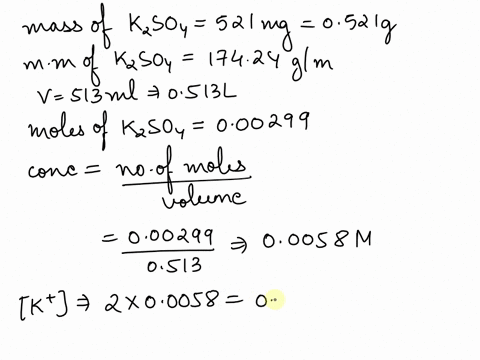 mass of K₂SO₄ = 521 mg = 0.521g
m.m of K₂SO₄ = 174.24 g/m
V = 513 ml ⇒ 0.513L
moles of K₂SO₄ = 0.00299
conc = no. of moles
volume
= 0.00299 ⇒ 0.0058 M
0.513
[K⁺] ⇒ 2 × 0.0058 = 0.